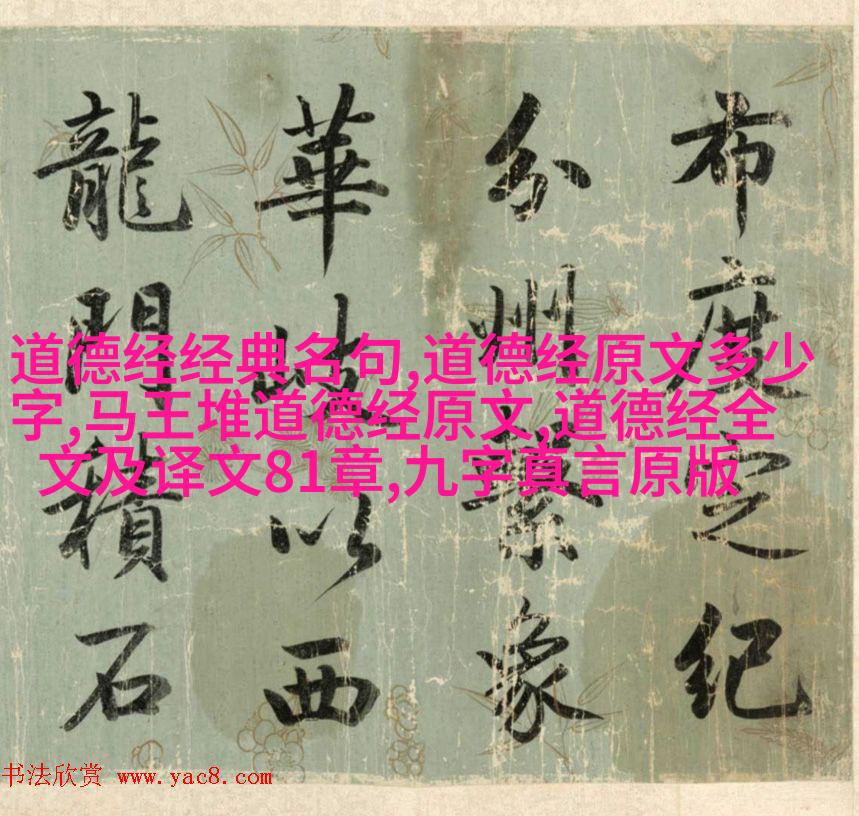 布度定紀
分州繫象
華以西
龍門積石
道德经经典名句,道德经原文多少
字,马王堆道德经原文,道德经全
文及译文81章,九字真言原版
书法欣赏 www.yac8.com